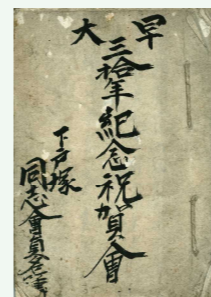 早大
三拾年紀念祝賀會
下戸塚
同志會員名簿